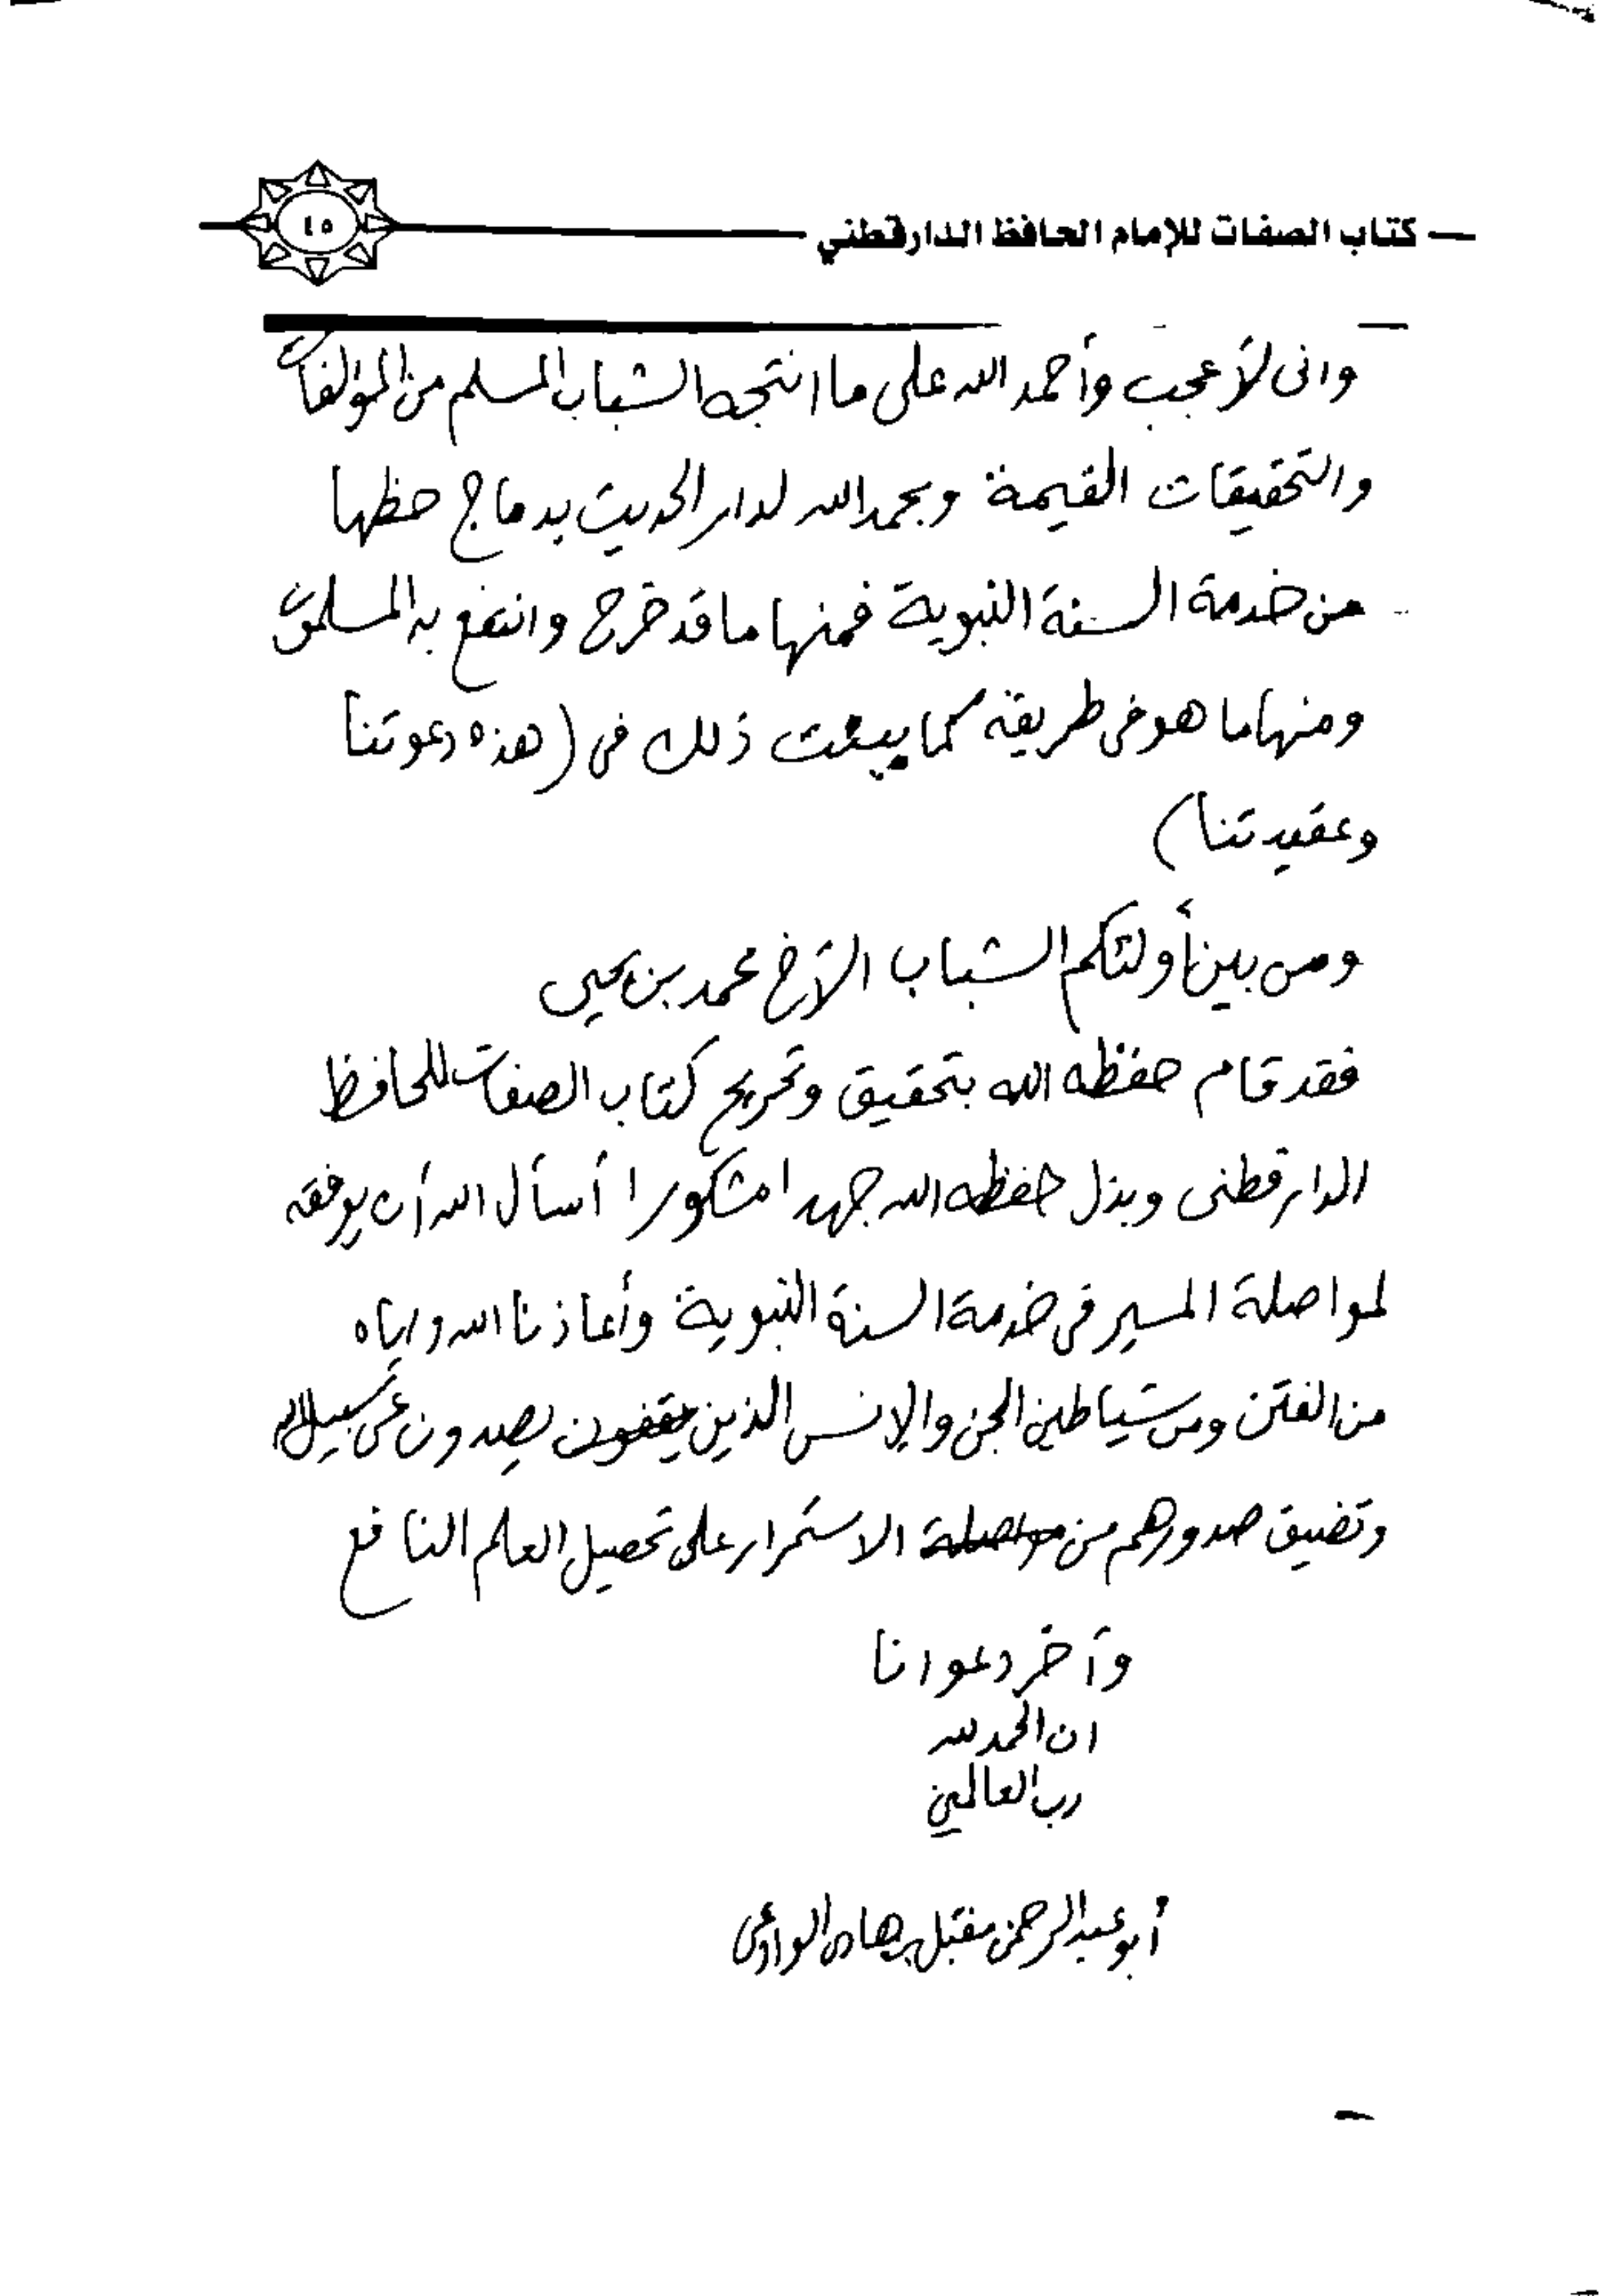 كتاب الصفات للإمام الحافظ الدارقطني
٤٥
وانى لأعجب وأحمد الله على ما انتجه الشباب المسلم من المؤلفات
والتحقيقات القيمة وبحمد الله لدار الحديث بدماج حظها
من خدمة السنة النبوية فمنها ما قد خرج وانتفع به المسلمون
ومنها ما هو فى طريقه كما بينت ذلك فى (هذه دعوتنا
وعقيدتنا)
ومن بين أولئكم الشباب الأخ محمد بن يحيى
فقد قام حفظه الله بتحقيق وتخريج كتاب الصفات للحافظ
الدارقطنى وبذل حفظه الله جهدا مشكورا أسأل الله أن يوفقه
لمواصلة المسير فى خدمة السنة النبوية وأعاذنا الله واياه
من الفتن ومن شياطين الجن والإنس الذين يصدون عن سبيل الله
وتضيق صدورهم من الاستمرار على تحصيل العلم النافع
وآخر دعوانا
ان الحمد لله
رب العالمين
أبو عبد الرحمن مقبل بن هادى الوادعى